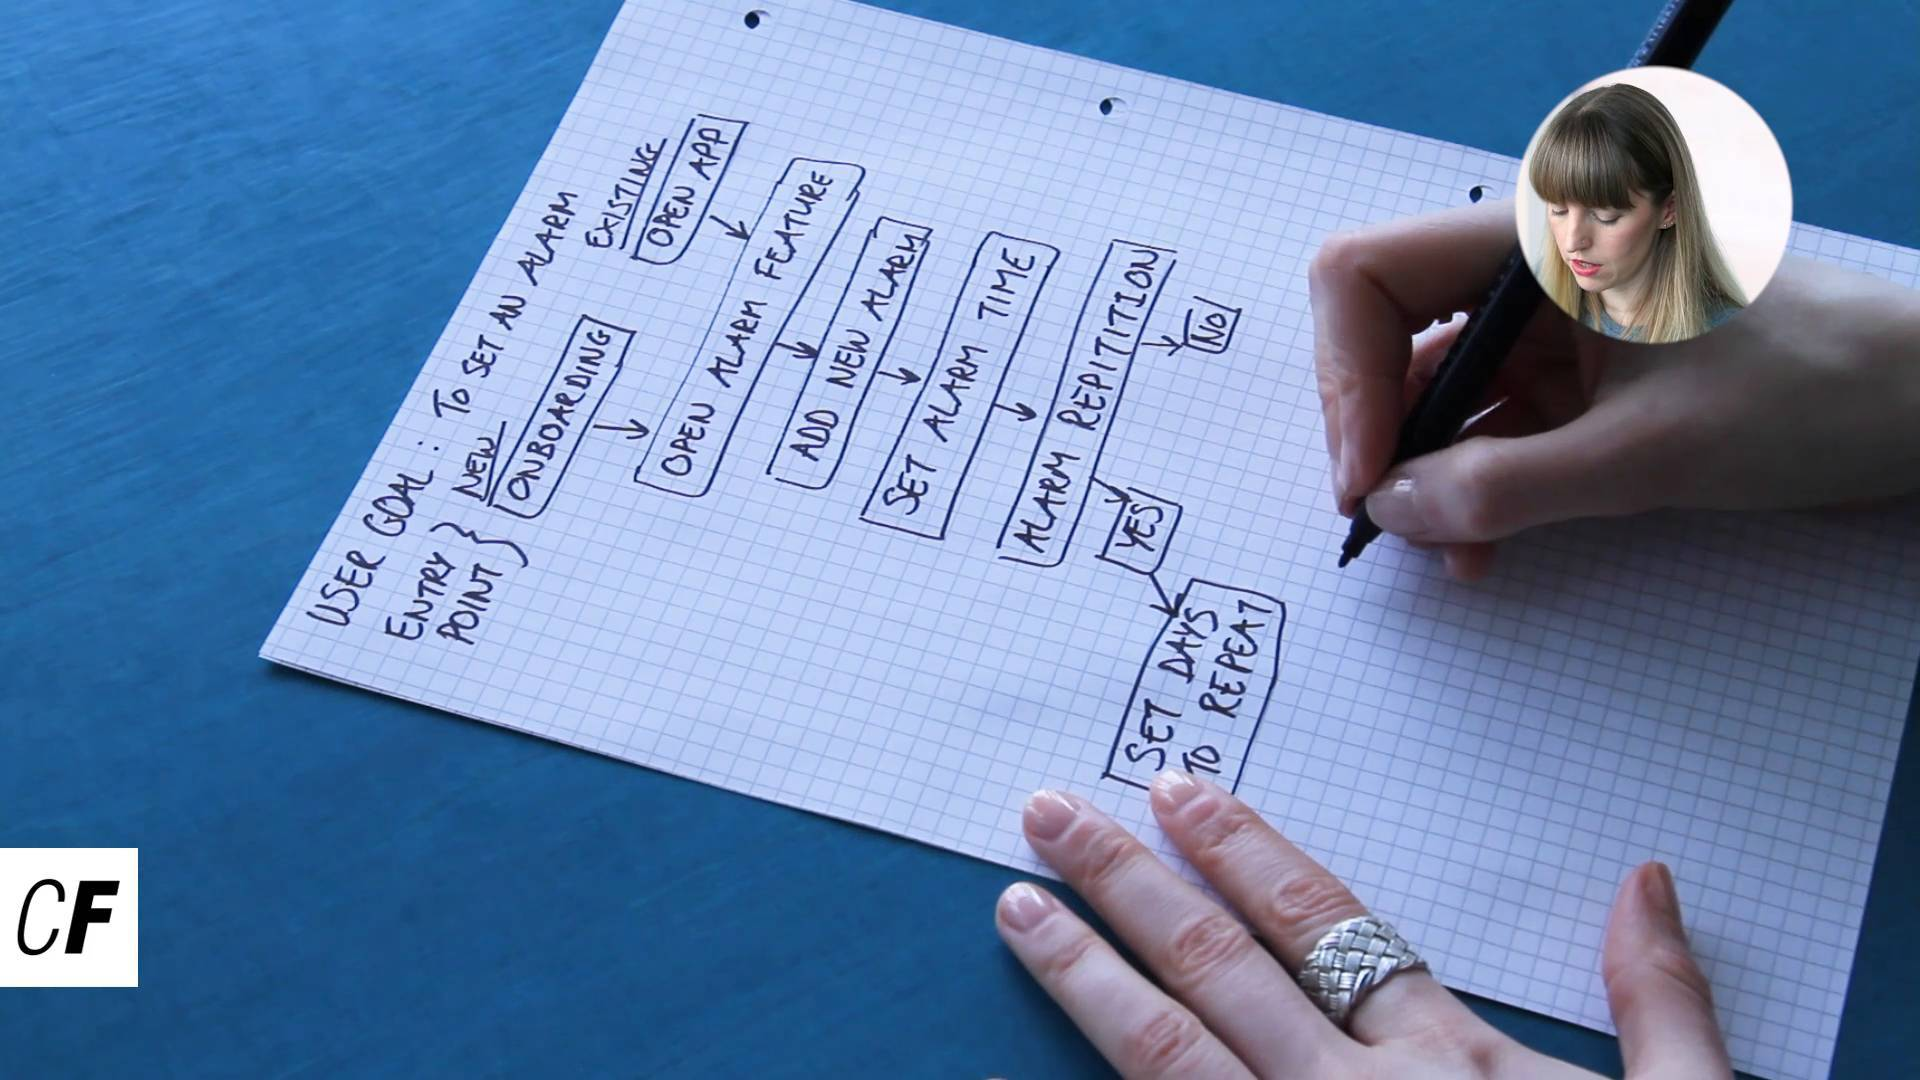 USER GOAL : TO SET AN ALARM
ENTRY
POINT
NEW
EXISTING
ONBOARDING
OPEN APP
OPEN ALARM FEATURE
ADD NEW ALARM
SET ALARM TIME
ALARM REPITITION
YES
NO
SET DAYS
TO REPEAT
CF